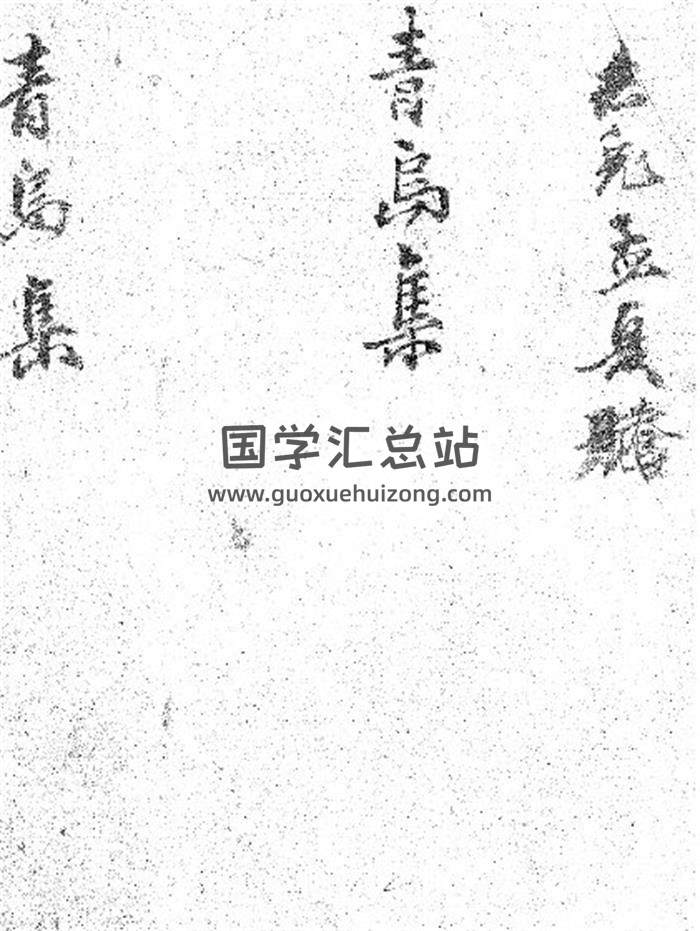 孟良
青烏集
青烏集
国学汇总站
www.guoxuehuizong.com